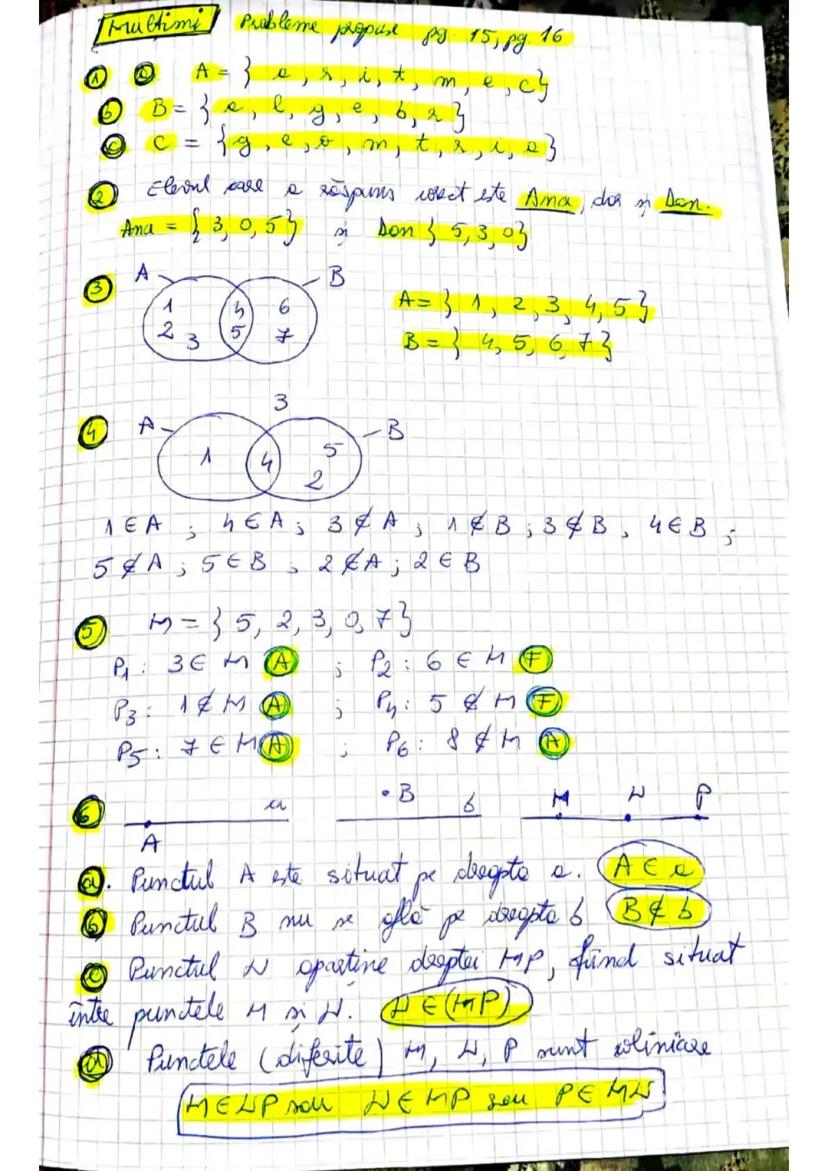 Multimi Probleme propuse pg. 15, pg. 16
① ⓐ A = { a, r, i, t, m, e, c}
ⓑ B = { a, l, g, e, b, r}
ⓒ C = { g, e, o, m, t, r, i, a}
② Elevul care a răspuns corect este Ana, dar și Dan.
Ana = { 3, 0, 5} și Dan { 5, 3, 0}
③ A B
1 4 6
2 3 5 7
A = { 1, 2, 3, 4, 5}
B = { 4, 5, 6, 7}
3
④ A B
1 4 5
2
1 ∈ A ; 4 ∈ A ; 3 ∉ A ; 1 ∉ B ; 3 ∉ B , 4 ∈ B ;
5 ∉ A ; 5 ∈ B , 2 ∉ A ; 2 ∈ B
⑤ M = { 5, 2, 3, 0, 7}
P1 : 3 ∈ M A ; P2 : 6 ∈ M F
P3 : 1 ∉ M A ; P4 : 5 ∉ M F
P5 : 7 ∈ M A ; P6 : 8 ∉ M A
⑥ a •B b M N P
A
ⓐ. Punctul A este situat pe dreapta a. A ∈ a
ⓑ Punctul B nu se află pe dreapta b B ∉ b
ⓒ Punctul N aparține dreptei MP, fiind situat
între punctele M și N. N ∈ (MP)
ⓓ Punctele (diferite) M, N, P sunt coliniare
M ∈ NP sau N ∈ MP sau P ∈ MN